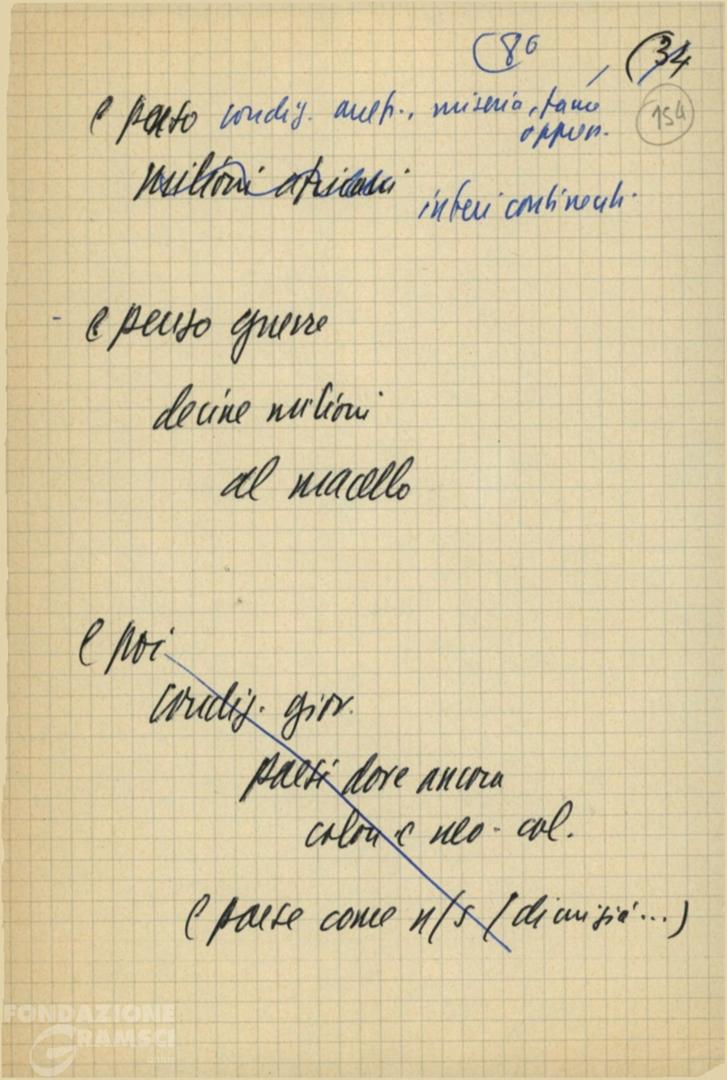 86 34
e penso condiz. arretr., miseria, fame 154
oppres.
milioni africani
interi continenti.
- e penso guerre
decine milioni
al macello
e poi
condiz. giov.
paesi dove ancora
colon. e neo-col.
e paese come n/s (dirigia...)
FONDAZIONE
GRAMSCI